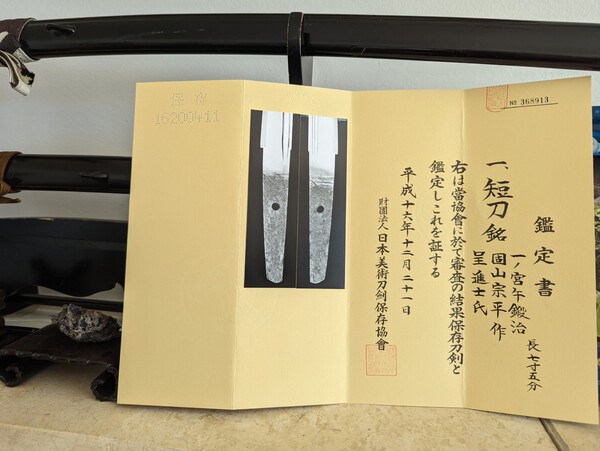 № 368913
鑑定書
一、短刀 銘
一ノ宮午鍛冶
固山宗平作
呈進士氏
長七寸五分
右は當協會に於て審査の結果保存刀剣と
鑑定しこれを証する
平成十六年十二月二十一日
財團法人 日本美術刀剣保存協會
保存
16200411